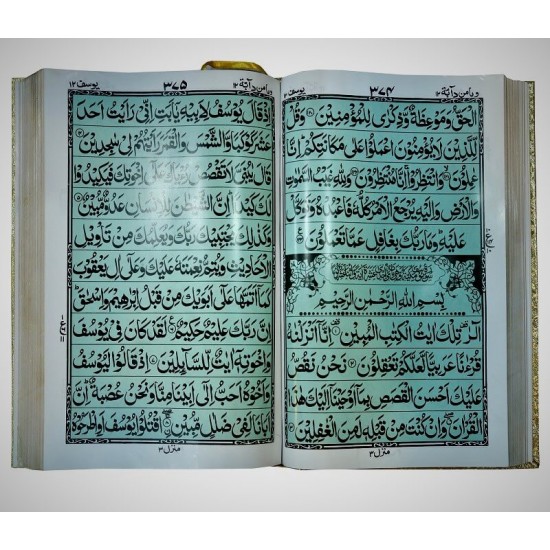 وما من دآبة ١٢
٣٧٤
يوسف ١٢
الْحَقُّ وَمَوْعِظَةٌ وَّذِكْرٰى لِلْمُؤْمِنِيْنَ ۝ وَقُلْ
لِّلَّذِيْنَ لَا يُؤْمِنُوْنَ اعْمَلُوْا عَلٰى مَكَانَتِكُمْ ؕ اِنَّا
عٰمِلُوْنَ ۝ وَانْتَظِرُوْا ۚ اِنَّا مُنْتَظِرُوْنَ ۝ وَلِلّٰهِ غَيْبُ السَّمٰوٰتِ
وَالْاَرْضِ وَاِلَيْهِ يُرْجَعُ الْاَمْرُ كُلُّهٗ فَاعْبُدْهُ وَتَوَكَّلْ
عَلَيْهِ ؕ وَمَا رَبُّكَ بِغَافِلٍ عَمَّا تَعْمَلُوْنَ ۝
بِسْمِ اللّٰهِ الرَّحْمٰنِ الرَّحِيْمِ
الٓرٰ ۫ تِلْكَ اٰيٰتُ الْكِتٰبِ الْمُبِيْنِ ۝ اِنَّاۤ اَنْزَلْنٰهُ
قُرْءٰنًا عَرَبِيًّا لَّعَلَّكُمْ تَعْقِلُوْنَ ۝ نَحْنُ نَقُصُّ
عَلَيْكَ اَحْسَنَ الْقَصَصِ بِمَاۤ اَوْحَيْنَاۤ اِلَيْكَ هٰذَا
الْقُرْاٰنَ ۖ وَاِنْ كُنْتَ مِنْ قَبْلِهٖ لَمِنَ الْغٰفِلِيْنَ ۝
منزل ٣
وما من دآبة ١٢
٣٧٥
يوسف ١٢
اِذْ قَالَ يُوْسُفُ لِاَبِيْهِ يٰۤاَبَتِ اِنِّيْ رَاَيْتُ اَحَدَ
عَشَرَ كَوْكَبًا وَّالشَّمْسَ وَالْقَمَرَ رَاَيْتُهُمْ لِيْ سٰجِدِيْنَ ۝
قَالَ يٰبُنَيَّ لَا تَقْصُصْ رُءْيَاكَ عَلٰۤى اِخْوَتِكَ فَيَكِيْدُوْا
لَكَ كَيْدًا ؕ اِنَّ الشَّيْطٰنَ لِلْاِنْسَانِ عَدُوٌّ مُّبِيْنٌ ۝
وَكَذٰلِكَ يَجْتَبِيْكَ رَبُّكَ وَيُعَلِّمُكَ مِنْ تَاْوِيْلِ
الْاَحَادِيْثِ وَيُتِمُّ نِعْمَتَهٗ عَلَيْكَ وَعَلٰۤى اٰلِ يَعْقُوْبَ
كَمَاۤ اَتَمَّهَا عَلٰۤى اَبَوَيْكَ مِنْ قَبْلُ اِبْرٰهِيْمَ وَاِسْحٰقَ ؕ
اِنَّ رَبَّكَ عَلِيْمٌ حَكِيْمٌ ۝ لَقَدْ كَانَ فِيْ يُوْسُفَ
وَاِخْوَتِهٖۤ اٰيٰتٌ لِّلسَّآئِلِيْنَ ۝ اِذْ قَالُوْا لَيُوْسُفُ
وَاَخُوْهُ اَحَبُّ اِلٰۤى اَبِيْنَا مِنَّا وَنَحْنُ عُصْبَةٌ ؕ اِنَّ
اَبَانَا لَفِيْ ضَلٰلٍ مُّبِيْنِ ۝ اقْتُلُوْا يُوْسُفَ اَوِ اطْرَحُوْهُ
منزل ٣